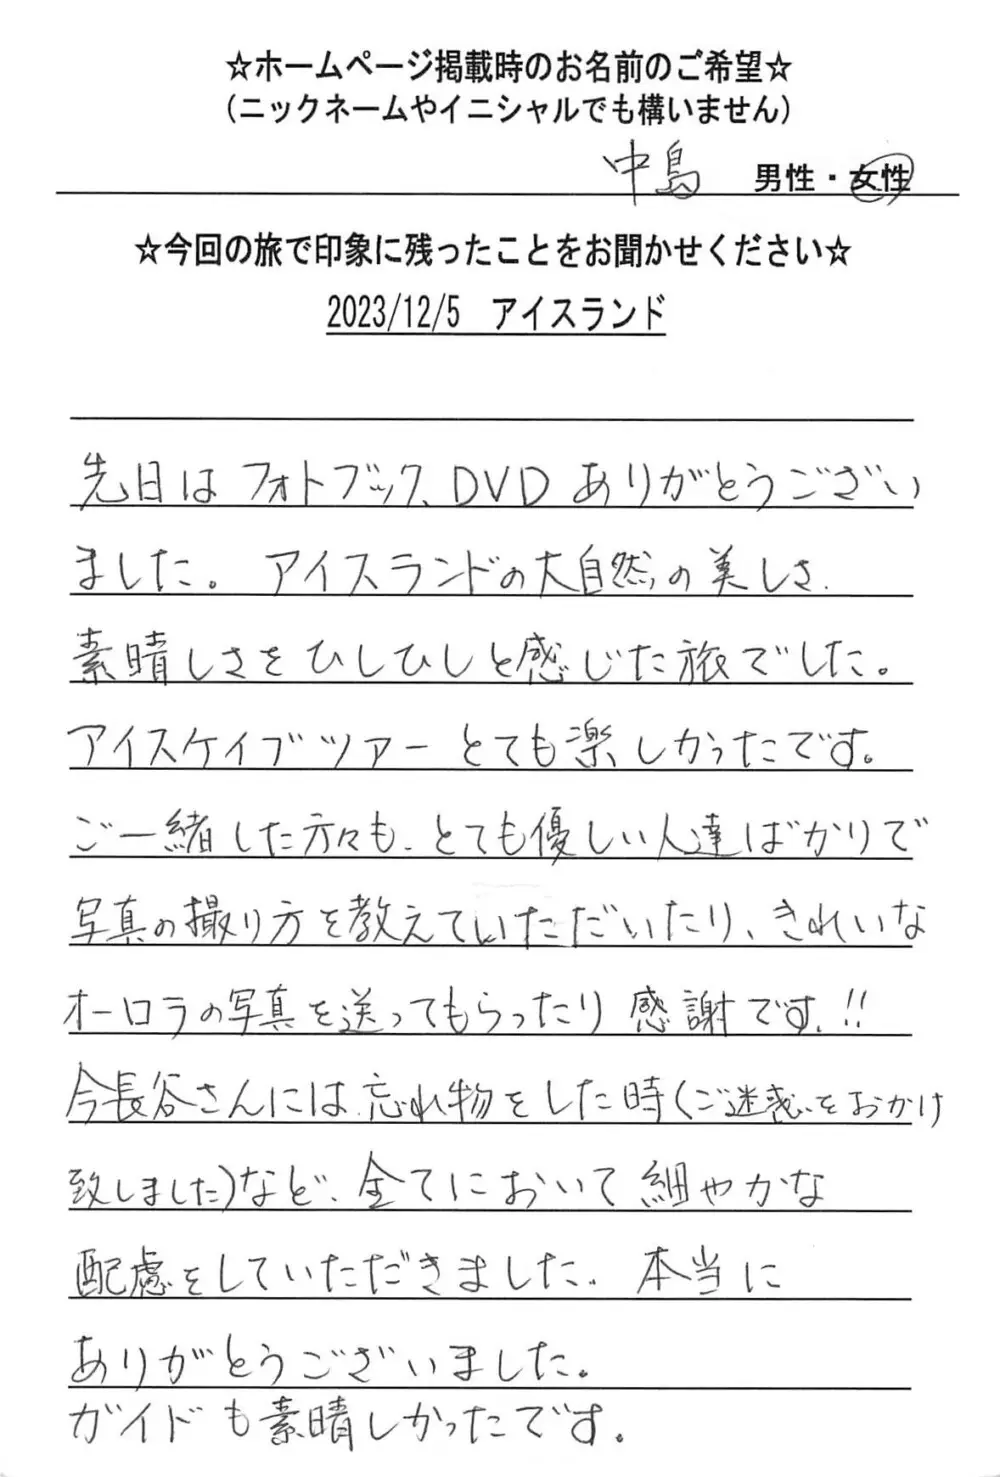 ☆ホームページ掲載時のお名前のご希望☆
(ニックネームやイニシャルでも構いません)
中島 男性・女性
☆今回の旅で印象に残ったことをお聞かせください☆
2023/12/5 アイスランド
先日は フォトブック、DVD ありがとうござい
ました。 アイスランドの大自然の美しさ、
素晴しさを ひしひしと感じた旅でした。
アイスケイブツアー とても楽しかったです。
ご一緒した方々も、とても優しい人達ばかりで
写真の撮り方を教えていただいたり、きれいな
オーロラの写真を送ってもらったり 感謝です!!
今長谷さんには、忘れ物をした時(ご迷惑をおかけ
致しました)など、全てにおいて 細やかな
配慮をしていただきました。 本当に
ありがとうございました。
ガイドも素晴しかったです。